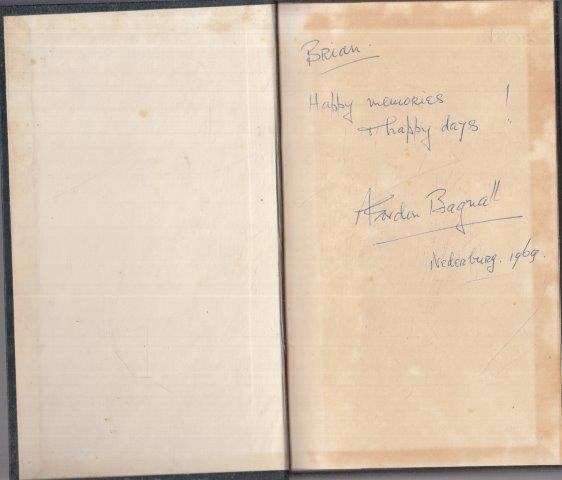 Brian.
Happy memories !
& happy days
A Gordon Bagnall
Nederburg. 1969.